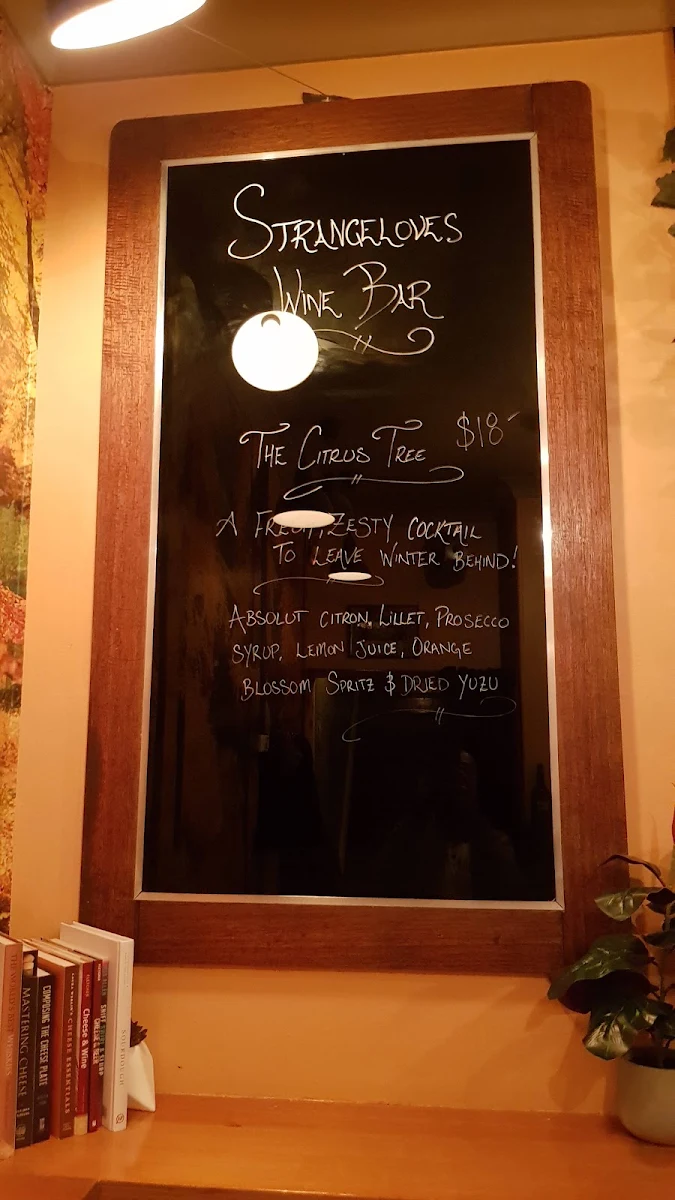 STRANGELOVES
WINE BAR
THE CITRUS TREE $18-
A FRESH, ZESTY COCKTAIL
TO LEAVE WINTER BEHIND!
ABSOLUT CITRON, LILLET, PROSECCO
SYRUP, LEMON JUICE, ORANGE
BLOSSOM SPRITZ & DRIED YUZU
MASTERING CHEESE
COMPOSING THE CHEESE PLATE
CHEESE ESSENTIALS
Cheese & Wine
CHEESE & BEER
SOURDOUGH